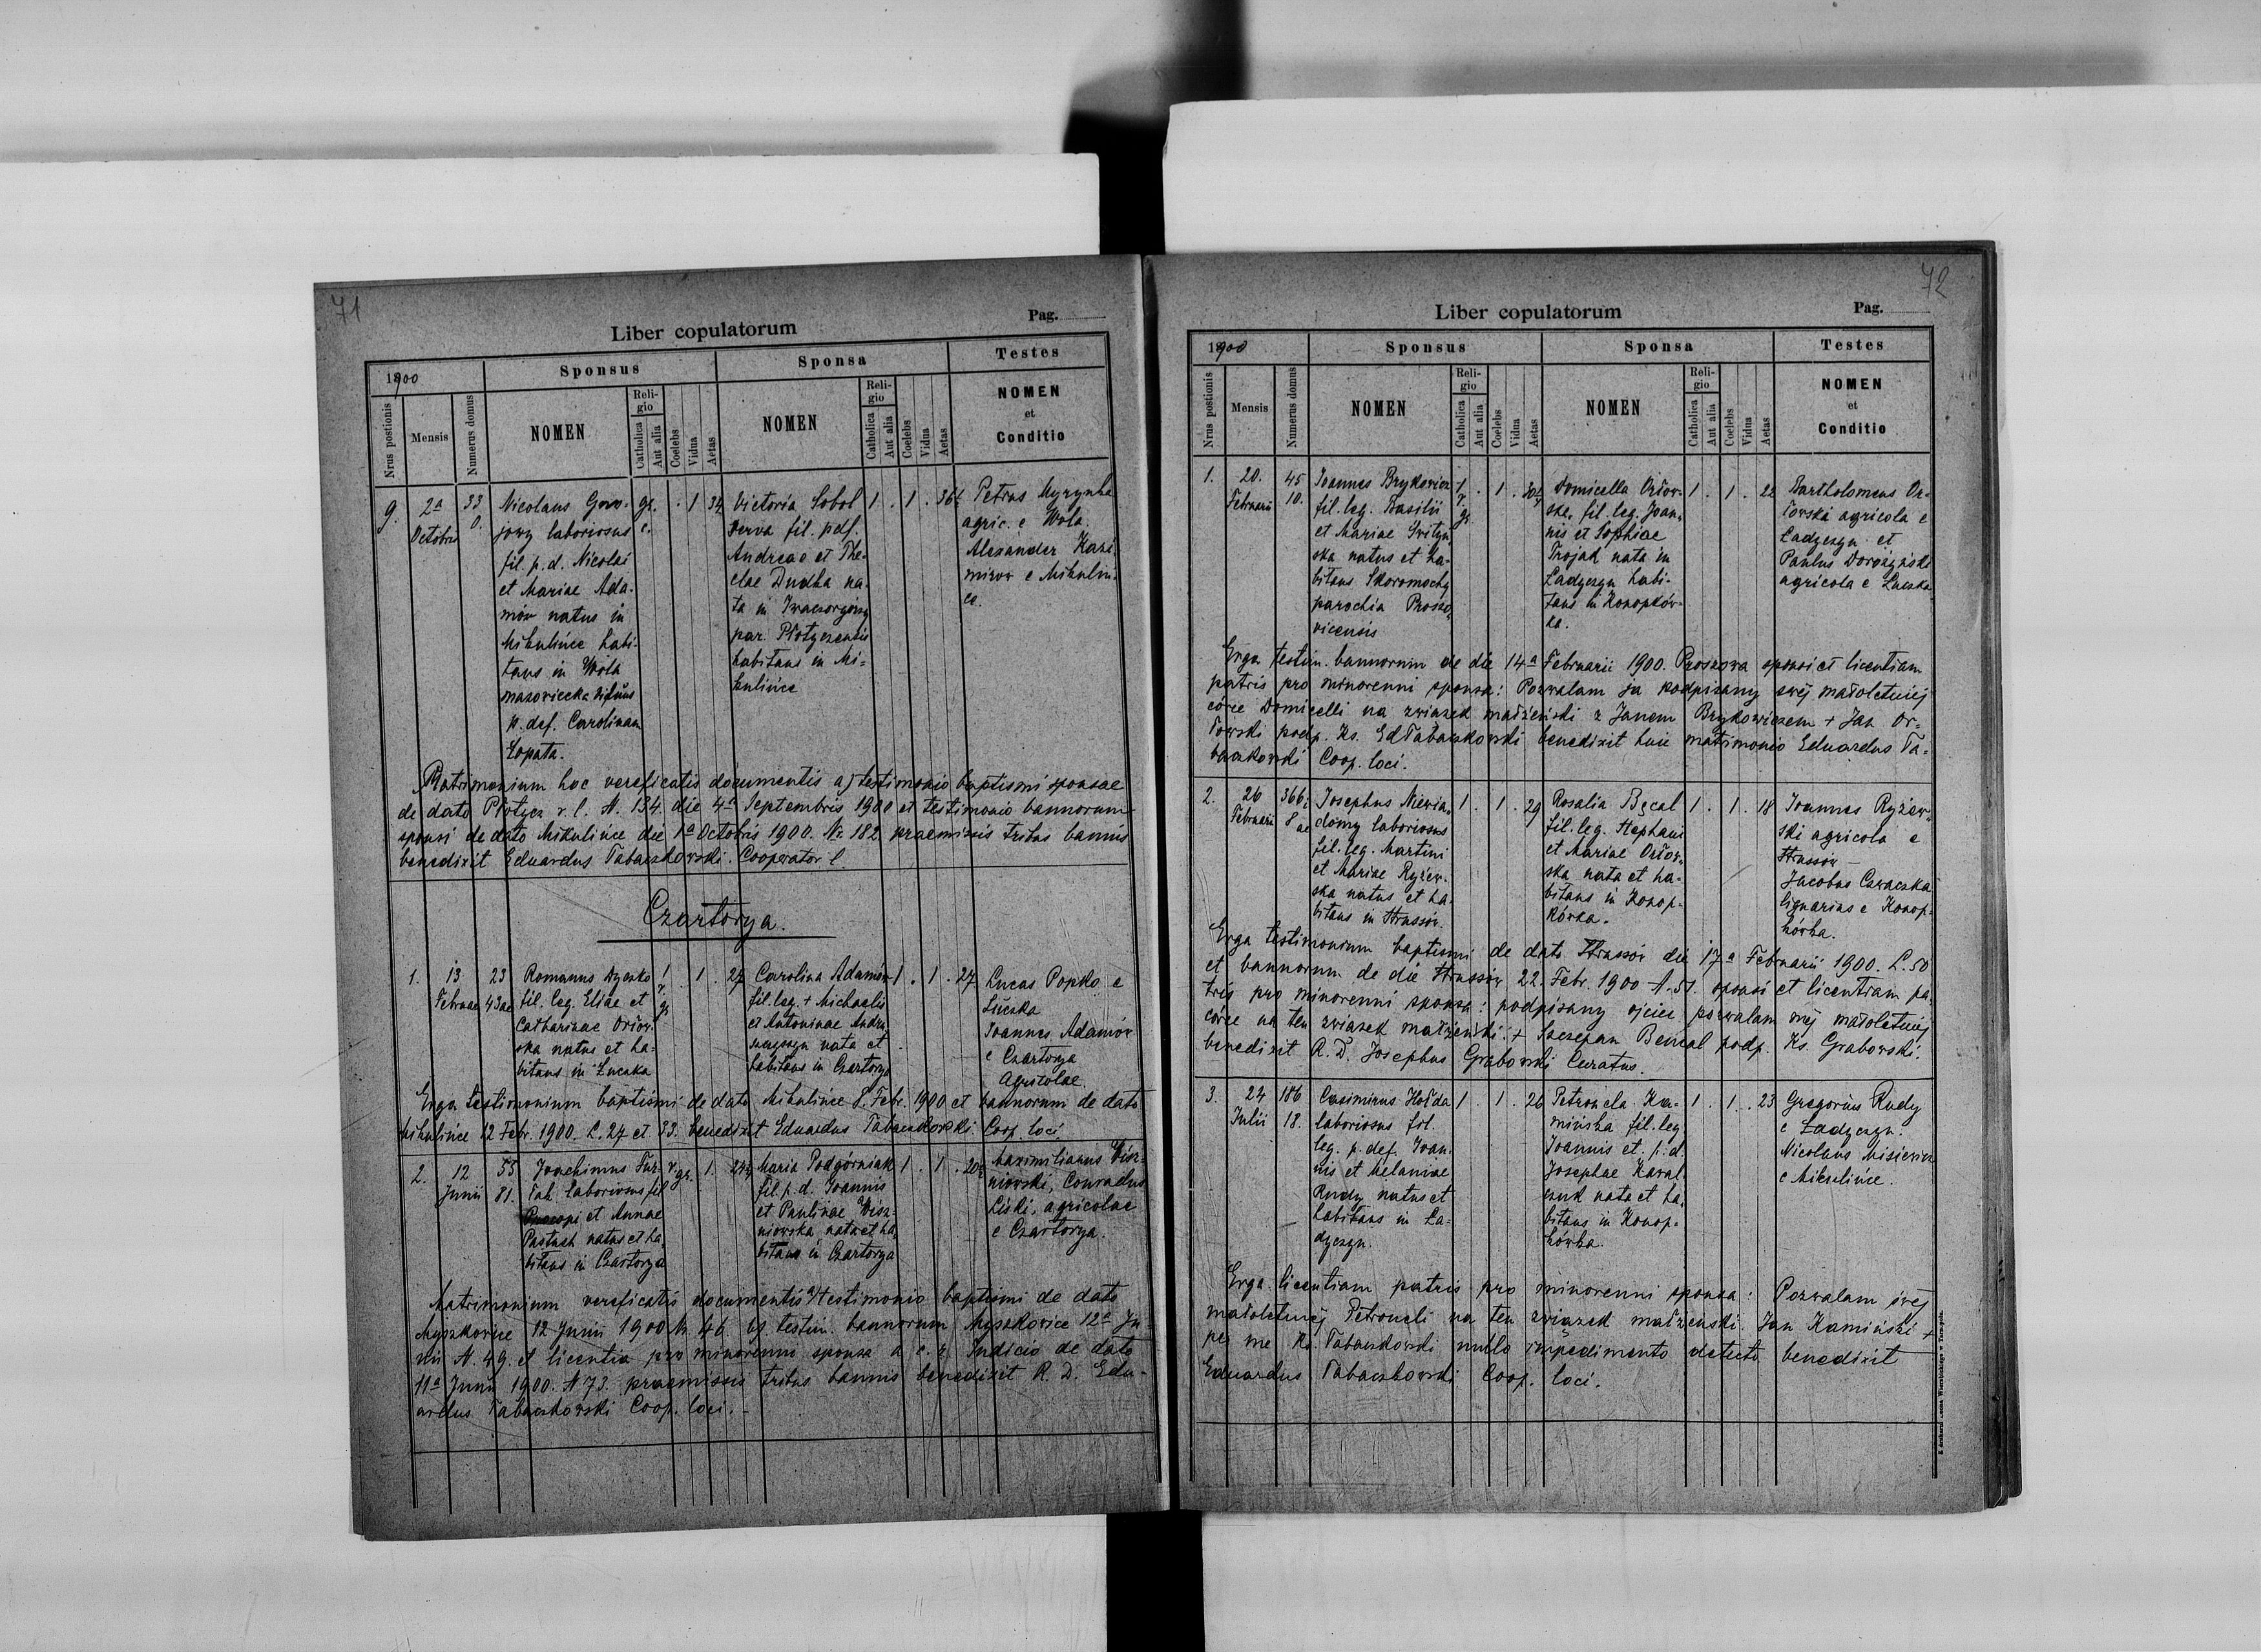 71
Liber copulatorum
Pag.
1900
Sponsus
Sponsa
Testes
Nrus postionis
Mensis
Numerus domus
NOMEN
Religio
Catholica
Aut alia
Coelebs
Vidua
Aetas
NOMEN
Religio
Catholica
Aut alia
Coelebs
Vidua
Aetas
NOMEN
et
Conditio
9.
2a
Octobris
33
0.
Nicolaus
jowy laboriosus
fil. p. d. Nicolai
et Mariae Ada-
mów natus in
Mikulińce habi-
tans in Wola
mazowiecka viduus
p. def. Carolinam
Łopata.
gr.
c.
. 1
34
Victoria Sobol
serva fil. pdf.
Andreae et The-
clae Dudka na-
ta in Iwaczorgórny
par. Płotyczensis
habitans in Mi-
kulińce
1 . 1 . 36½
Petrus
agric. e Wola
Alexander Kazi-
mirow e Mikuliń-
ce.
Matrimonium hoc vereficatis documentis a) testimonio baptismi sponsae
de dato Płotycz r. l. N. 134. die 4a Septembris 1900 et testimonio bannorum
sponsi de dato Mikulińce die 1a Octobris 1900. Nr 182. praemissis tribus bannis
benedixit Eduardus Tabaczkowski. Cooperator l.
Czartorya.
1.
13
Februar
23
43ae
Romanus Dyczko
fil. leg. Eliae et
Catharinae Orłow-
ska natus et ha-
bitans in Łuczka
1
r.
gr
. 1 . 27
Carolina Adamów
fil. leg. + Michaelis
et Antoninae Andru-
nata et
habitans in Czartorya
1 . 1 . 27
Lucas Popko e
Łuczka
Joannes Adamów
e Czartorya
Agricolae.
Erga testimonium baptismi de dato Mikulińce 8. Febr. 1900 et bannorum de dato
Mikulińce 12 Febr. 1900. L. 27 et 33. benedixit Eduardus Tabaczkowski Coop. loci.
2.
12
Junii
55
81.
Joachimus Fur-
tak laboriosus fil
et Annae
Pastuch natus et ha-
bitans in Czartorya
r.
gr.
1. 24½
Maria Podgórniak
fil. p. d. Joannis
et Paulinae Wisz-
niowska nata et ha-
bitans in Czartorya
1 . 1 . 20½
Maximilianus Wisz-
niowski, Conradus
Liski, agricolae
e Czartorya.
Matrimonium vereficatis documentis a/testimonio baptismi de dato
Myszkowice 12 Junii 1900 N 46. b/. testim. bannorum Myszkowice 12a Ju-
nii N. 49. et licentia pro minorenni sponsa a c. r. Indicio de dato
11a Junii 1900. N 73. praemissis tribus bannis benedixit R. D. Edu-
ardus Tabaczkowski Coop. loci.
72
Liber copulatorum
Pag.
1900
Sponsus
Sponsa
Testes
Nrus postionis
Mensis
Numerus domus
NOMEN
Religio
Catholica
Aut alia
Coelebs
Vidua
Aetas
NOMEN
Religio
Catholica
Aut alia
Coelebs
Vidua
Aetas
NOMEN
et
Conditio
1.
20.
Februarii
45
10.
Joannes Brykowicz
fil. leg. Basilii
et Mariae
ska natus et ha-
bitans Skoromochy
parochia Proszo-
vicensis
1
r.
gr.
. 1 . 30½
Domicella Orłow-
ska, fil. leg. Joan-
nis et Sophiae
Trojad nata in
Ładyczyn habi-
tans in Konopków-
ka.
1 . 1 . 22
Bartholomeus Or-
łowski agricola e
Ładyczyn et
Paulus Dorożyński
agricola e Łuczka
Erga testim. bannorum de die 14a Februarii 1900. Proszowa sponsi et licentiam
patris pro minorenni sponsa: Pozwalam ja podpisany swej małoletniej
córce Domicelli na związek małżeński z Janem Brykowiczem + Jan Or-
łowski podp. Ks. Ed Tabaczkowski benedixit huic matrimonio Eduardus Ta-
baczkowski Coop. loci.
2.
26
Februarii
366½
8 ae
Josephus Niewia-
domy laboriosus
fil. leg. Martini
et Mariae Ryżew-
ska natus et ha-
bitans in Strussów.
1 . 1 . 29
Rosalia Bęcal
fil. leg. Stephani
et Mariae Orłow-
ska nata et ha-
bitans in Konop-
kówka.
1 . 1 . 18
Joannes Ryżew-
ski agricola e
Strussów –
Jacobus Czwaczka
lignarius e Konop-
kówka.
Erga testimonium baptismi de dato Strussów die 17a Februarii 1900. L. 50
et bannorum de die Strussów 22. Febr. 1900 N. 51. sponsi et licentiam pa-
tris pro minorenni sponsa: podpisany ojciec pozwalam mej małoletniej
córce na ten związek małżeński. + Szczepan Bencal podp. Ks. Grabowski.
benedixit R. D. Josephus Grabowski Curatus.
3.
24
Julii
186
18.
Casimirus Hołda
laboriosus fil.
leg. p. def. Joan-
nis et Melaniae
Rudy natus et
habitans in Ła-
dyczyn.
1 . 1 . 26
Petronela Ka-
mińska fil. leg.
Joannis et p. d.
Josephae Kawal-
czuk nata et ha-
bitans in Konop-
kówka.
1 . 1 . 23
Gregorius Rudy
e Ładyczyn.
Nicolaus Misiewicz
e Mikulińce.
Erga licentiam patris pro minorenni sponsa: Pozwalam swej
małoletniej Petroneli na ten związek małżeński. Jan Kamiński +
per me Ks. Tabaczkowski nullo impedimento detecto benedixit
Eduardus Tabaczkowski Coop. loci.
Z drukarni Leona Wierzbickiego w Tarnopolu.